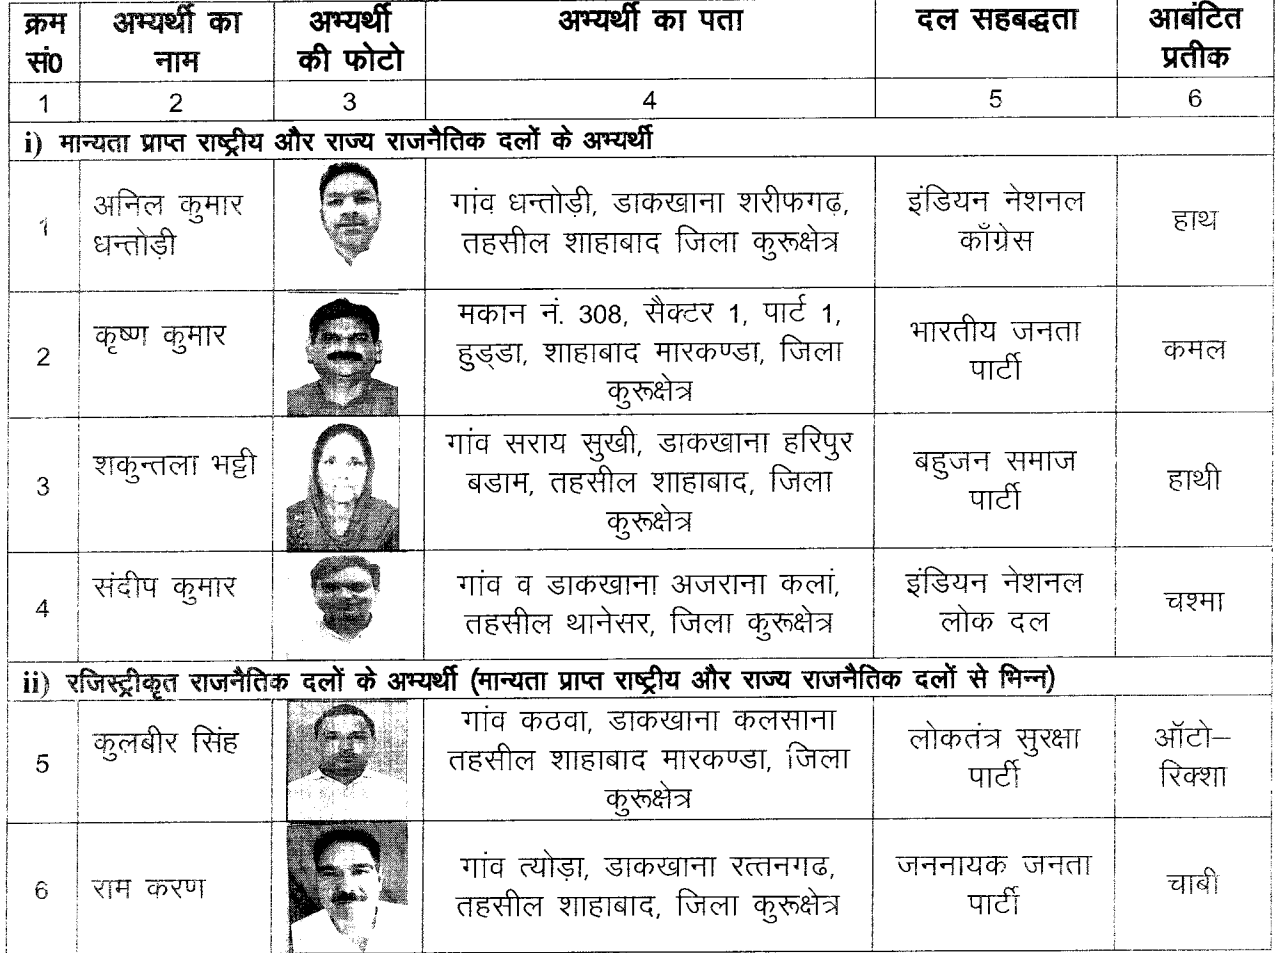 क्रम सं0 अभ्यर्थी का नाम अभ्यर्थी की फोटो अभ्यर्थी का पता दल सहबद्धता आबंटित प्रतीक
1 2 3 4 5 6
i) मान्यता प्राप्त राष्ट्रीय और राज्य राजनैतिक दलों के अभ्यर्थी
1
अनिल कुमार
धन्तोड़ी
गांव धन्तोड़ी, डाकखाना शरीफगढ़,
तहसील शाहाबाद जिला कुरूक्षेत्र
इंडियन नेशनल
काँग्रेस
हाथ
2
कृष्ण कुमार
मकान नं. 308, सैक्टर 1, पार्ट 1,
हुड्डा, शाहाबाद मारकण्डा, जिला
कुरूक्षेत्र
भारतीय जनता
पार्टी
कमल
3
शकुन्तला भट्टी
गांव सराय सुखी, डाकखाना हरिपुर
बडाम, तहसील शाहाबाद, जिला
कुरूक्षेत्र
बहुजन समाज
पार्टी
हाथी
4
संदीप कुमार
गांव व डाकखाना अजराना कलां,
तहसील थानेसर, जिला कुरूक्षेत्र
इंडियन नेशनल
लोक दल
चश्मा
ii) रजिस्ट्रीकृत राजनैतिक दलों के अभ्यर्थी (मान्यता प्राप्त राष्ट्रीय और राज्य राजनैतिक दलों से भिन्न)
5
कुलबीर सिंह
गांव कठवा, डाकखाना कलसाना
तहसील शाहाबाद मारकण्डा, जिला
कुरूक्षेत्र
लोकतंत्र सुरक्षा
पार्टी
ऑटो–
रिक्शा
6
राम करण
गांव त्योड़ा, डाकखाना रत्तनगढ,
तहसील शाहाबाद, जिला कुरूक्षेत्र
जननायक जनता
पार्टी
चाबी